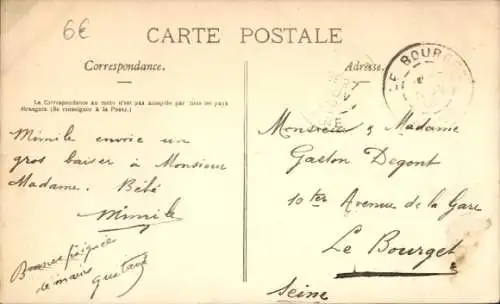 6€
CARTE POSTALE
Correspondance.
Adresse.
La Correspondance au recto n'est pas acceptée par tous les pays
étrangers (Se renseigner à la Poste.)
LE BOURGET
Mimile envoie un
gros baiser à Monsieur
Madame. Bébé
Mimile
Bonnes
de mains
Gustave
Monsieur & Madame
Gaston Degont
10ter Avenue de la Gare
Le Bourget
Seine